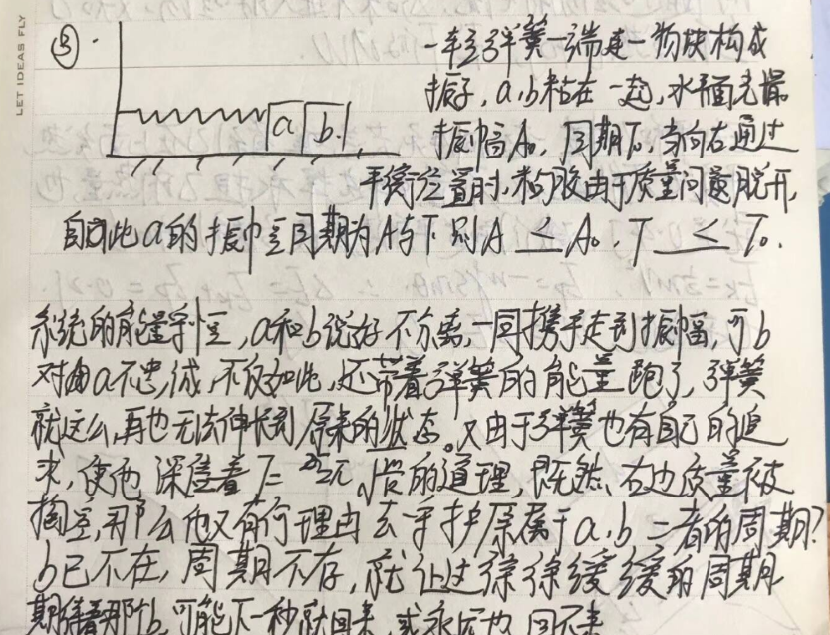 LET IDEAS FLY
③.
一轻弹簧一端连一物块构成
振子，a,b粘在一起，水平面光滑
a b
振幅A₀，周期T₀，当向右通过
平衡位置时，粘胶由于质量问题脱开，
自此a的振幅与周期为A与T 则A ＜ A₀，T ＜ T₀.
系统的能量守恒，a和b说好不分离，一同携手走到振幅，可b
对由a不忠诚，不仅如此，还带着弹簧的能量跑了，弹簧
就这么再也无法伸长到原来的状态。又由于弹簧也有自己的追
求，使他深信着T=2π 的道理，既然右边质量被
掏空，那么他又有何理由去守护原属于a,b二者的周期？
b已不在，周期不存，就让这徐徐缓缓的周期
期待着那b，可能下一秒就回来，或永远也回不来